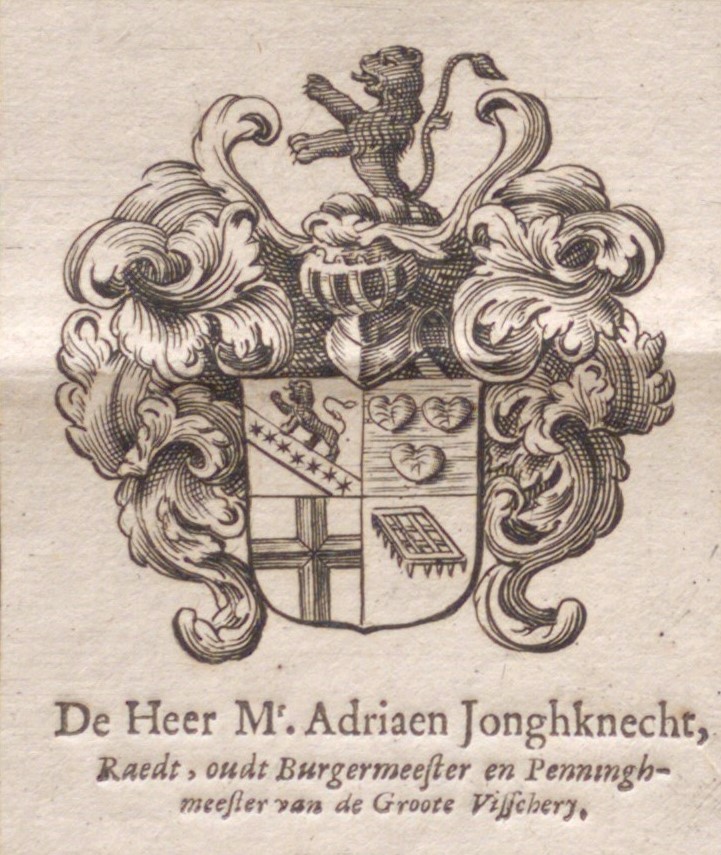 De Heer Mʳ. Adriaen Jonghknecht,
Raedt, oudt Burgermeeſter en Penningh-
meeſter van de Groote Viſſchery.